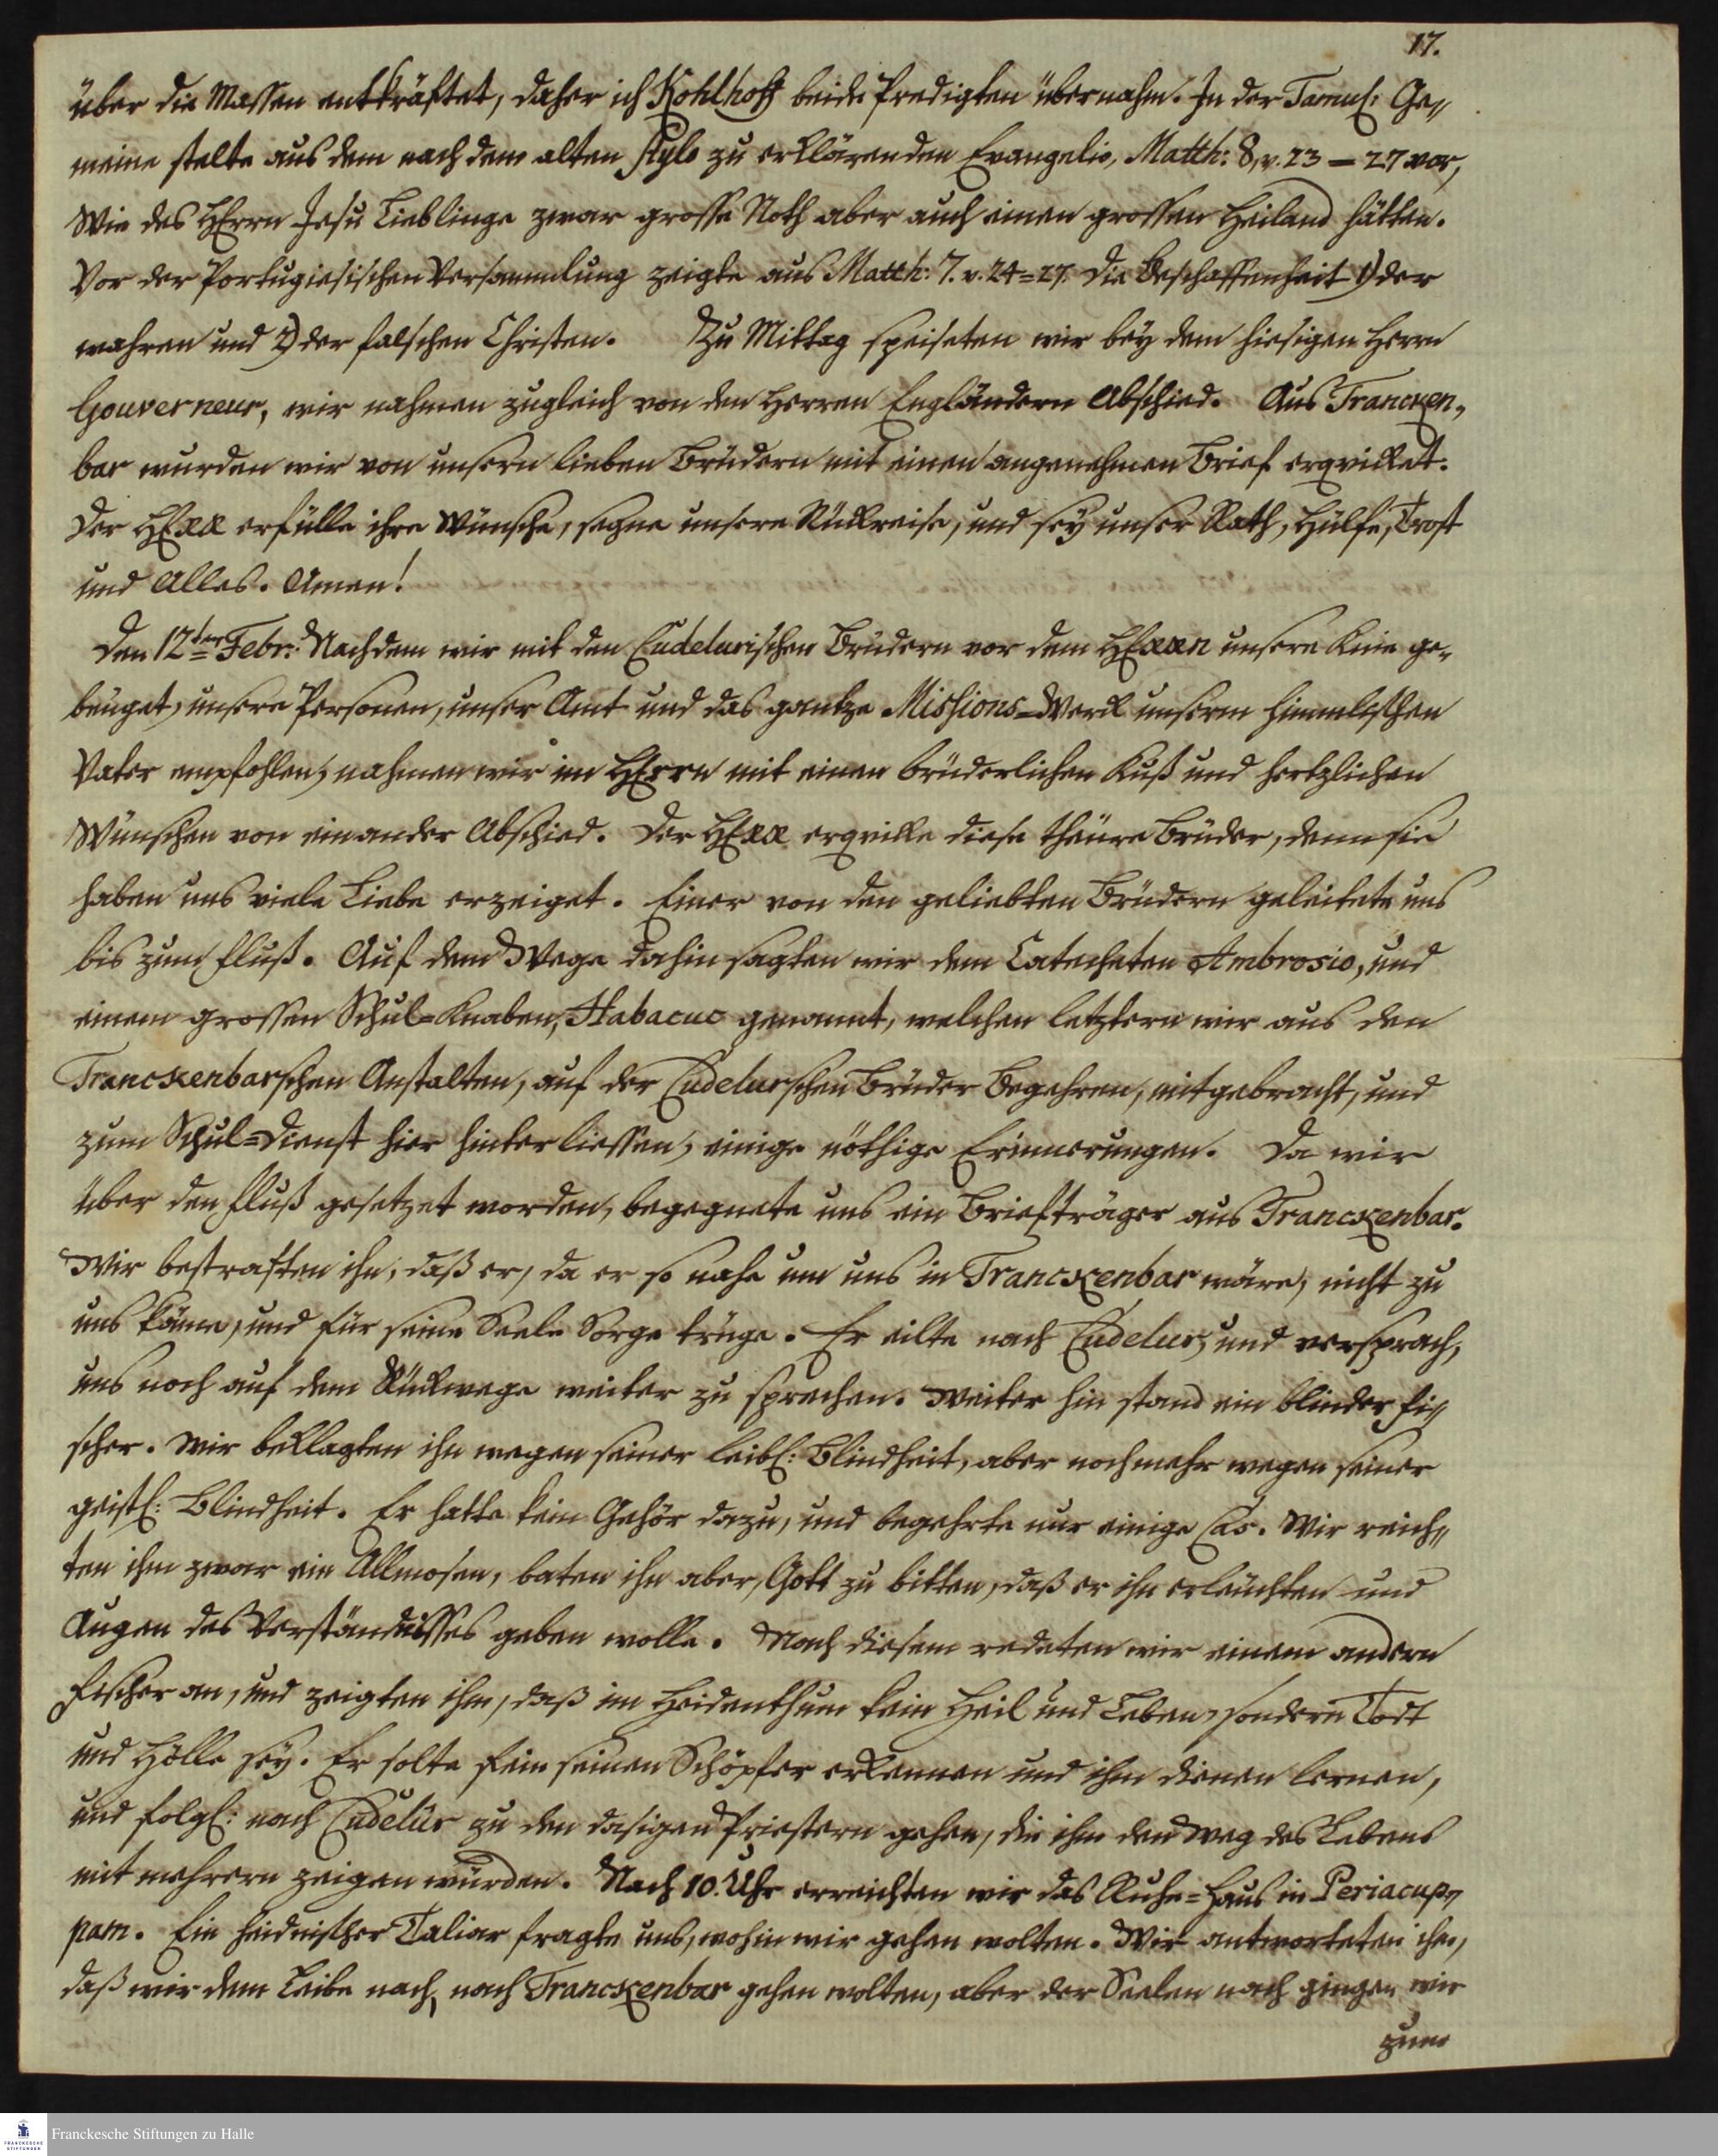 17.
über die Massen entkräftet, daher ich Kohlhoff beide Predigten übernahm. In der Tamul: Ge„
meine stelte aus dem nach dem alten stylo zu erklärenden Evangelio, Matth: 8, v. 23 – 27 vor,
Wie des HErrn Jesu Lieblinge zwar grosse Noth aber auch einen grossen Heiland hätten.
Vor der Portugiesischen Versammlung zeigte aus Matth: 7. v. 24=27. die Beschaffenheit 1) der
wahren und 2) der falschen Christen. Zu Mittag speiseten wir bey dem hiesigen Herrn
Gouverneur, wir nahmen zugleich von den Herren Engländern Abschied. Aus Trancken„
bar wurden wir von unsern lieben Brüdern mit einen angenehmen Brief erqvicket.
Der HErr erfülle ihre Wünsche, segne unsere Rückreise, und sey unser Rath, Hülfe, Trost
und Alles. Amen!
Den 12ten Febr: Nachdem wir mit den Cudelurischen Brüdern vor dem HErrn unsere Knie ge„
beuget, unsere Personen, unser Amt und das gantze Missions-Werck unserm himmlischen
Vater empfohlen, nahmen wir im HErrn mit einen brüderlichen Kuß und hertzlichen
Wünschen von einander Abschied. Der HErr erqvicke diese theure Brüder, denn sie
haben uns viele Liebe erzeiget. Einer von den geliebten Brüdern geleitete uns
bis zum Fluß. Auf dem Wege dahin sagten wir dem Catecheten Ambrosio, und
einem grossen Schul=Knaben, Habacuc genannt, welchen letztern wir aus den
Tranckenbarschen Anstalten, auf der Cudelurschen Brüder Begehren, mitgebracht, und
zum Schul=Dienst hier hinterliessen, einige nöthige Erinnerungen. Da wir
über den Fluß gesetzet worden, begegnete uns ein Briefträger aus Tranckenbar.
Wir bestraften ihn, daß er, da er so nahe um uns in Tranckenbar wäre, nicht zu
uns käme, und für seine Seele Sorge trüge. Er eilte nach Cudelur, und versprach,
uns noch auf dem Rückwege weiter zu sprechen. Weiter hin stand ein blinder Fi„
scher. Wir beklagten ihn wegen seiner leibl: Blindheit, aber noch mehr wegen seiner
geistl: Blindheit. Er hatte kein Gehör dazu, und begehrte nur einige Cas. Wir reich„
ten ihm zwar ein Allmosen, baten ihn aber, Gott zu bitten, daß er ihn erleuchten und
Augen des Verständnisses geben wolle. Nach diesem redeten wir einem andern
Fischer an, und zeigten ihm, daß im Heidenthum kein Heil und Leben, sondern Todt
und Hölle sey. Er solte fein seinen Schöpfer erkennen und ihm dienen lernen,
und folgl: nach Cudelur zu den dasigen Priestern gehen, die ihm den Weg des Lebens
mit mehrern zeigen würden. Nach 10. Uhr erreichten wir das Ruhe=Haus in Periacup„
pam. Ein heidnischer Taliar fragte uns, wohin wir gehen wolten. Wir antworteten ihm,
daß wir dem Leibe nach, nach Tranckenbar gehen wolten, aber der Seelen nach gingen wir
zum
Franckesche Stiftungen zu Halle